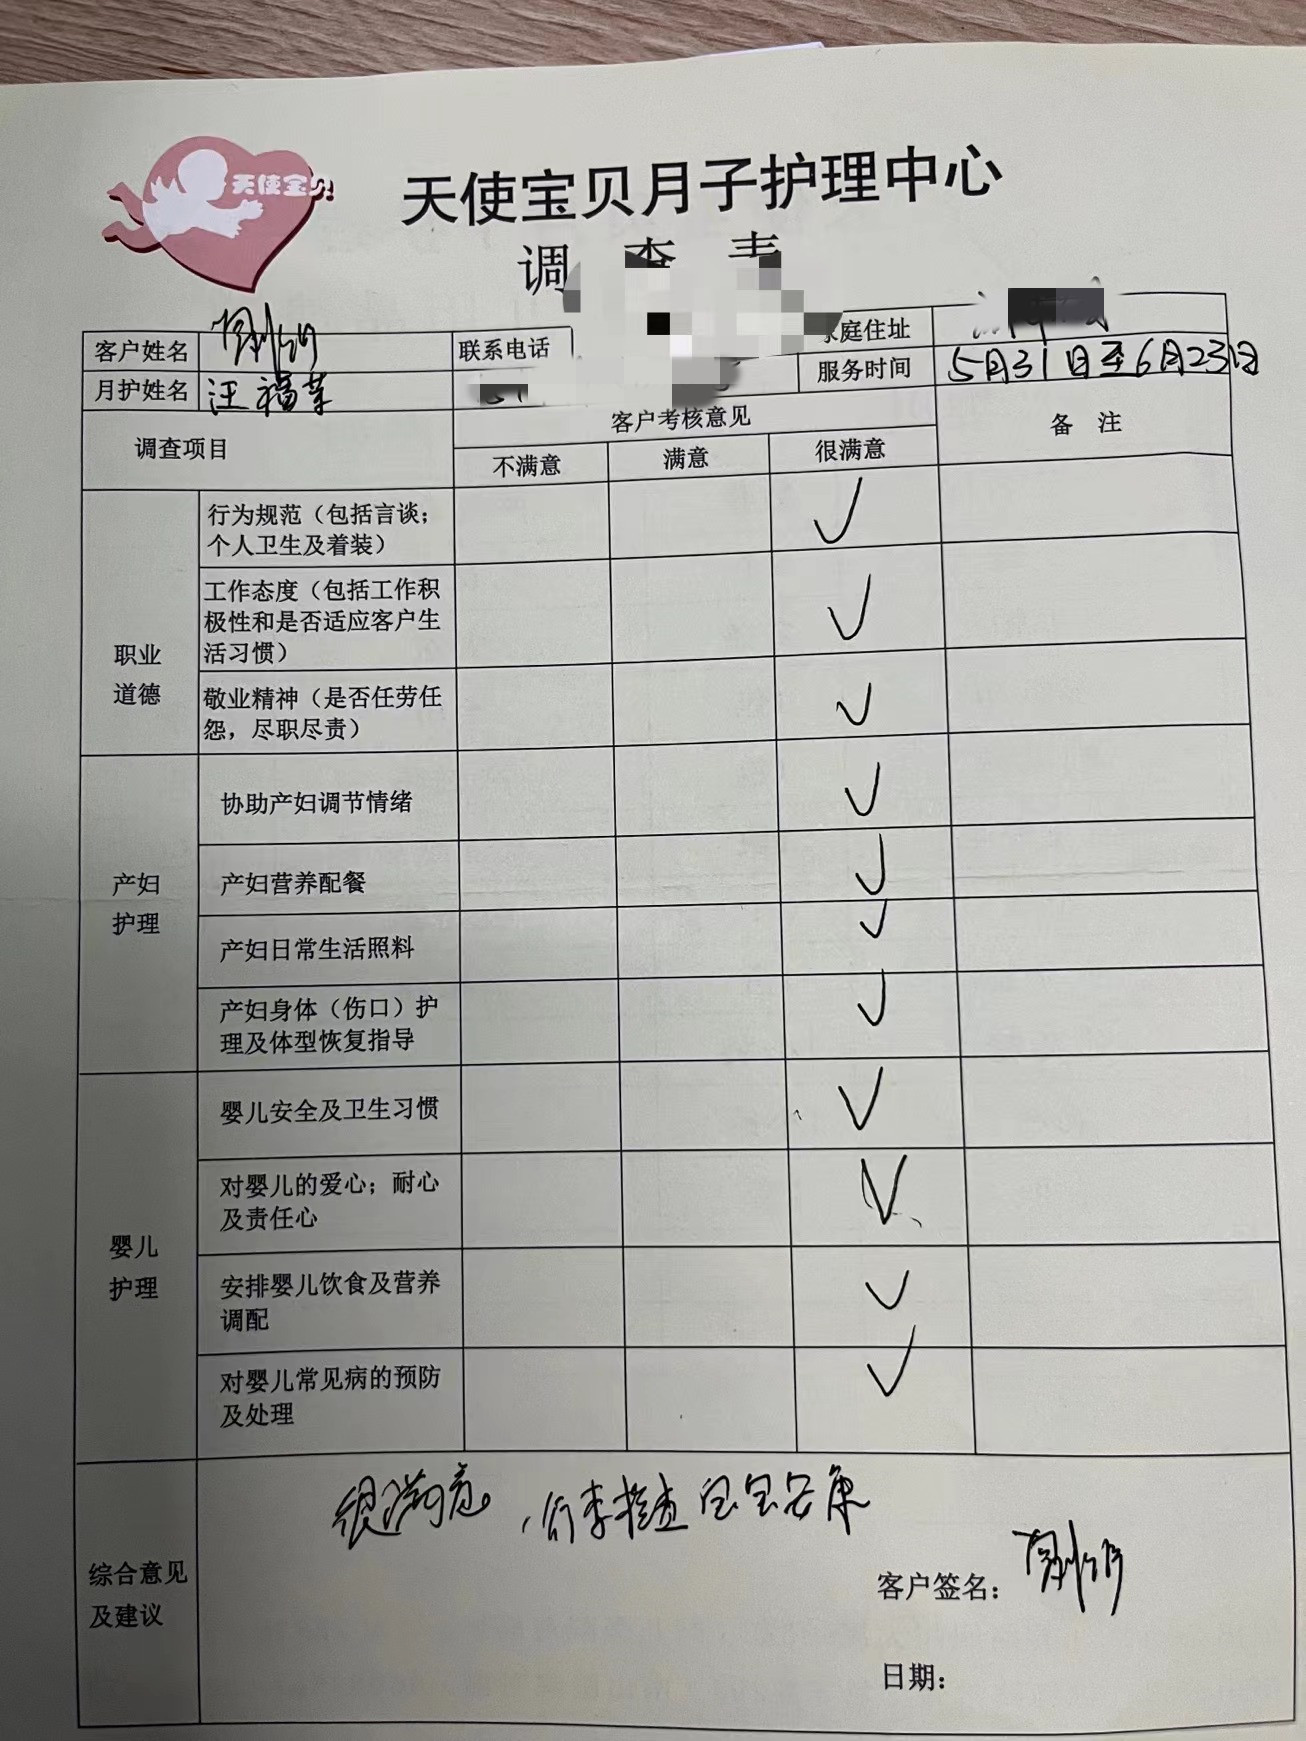 天使宝贝
天使宝贝月子护理中心
调查表
客户姓名 联系电话 家庭住址
月护姓名 汪福莱 服务时间 5月31日至6月23日
调查项目 客户考核意见 备 注
不满意 满意 很满意
职业
道德
行为规范（包括言谈；
个人卫生及着装） ✓
工作态度（包括工作积
极性和是否适应客户生
活习惯） ✓
敬业精神（是否任劳任
怨，尽职尽责） ✓
产妇
护理
协助产妇调节情绪 ✓
产妇营养配餐 ✓
产妇日常生活照料 ✓
产妇身体（伤口）护
理及体型恢复指导 ✓
婴儿
护理
婴儿安全及卫生习惯 ✓
对婴儿的爱心；耐心
及责任心 ✓
安排婴儿饮食及营养
调配 ✓
对婴儿常见病的预防
及处理 ✓
综合意见
及建议
很满意，宝宝安康
客户签名：
日期：